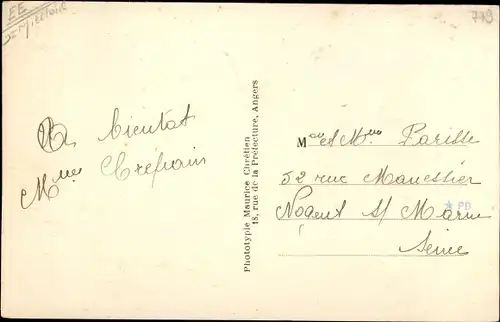 EE
719
A bientot
Mme Crépain
Phototypie Maurice Chrétien
18, rue de la Préfecture, Angers
Mon et Mme Parisse
52 rue Manessier
Nogent s/ Marne
Seine
PB